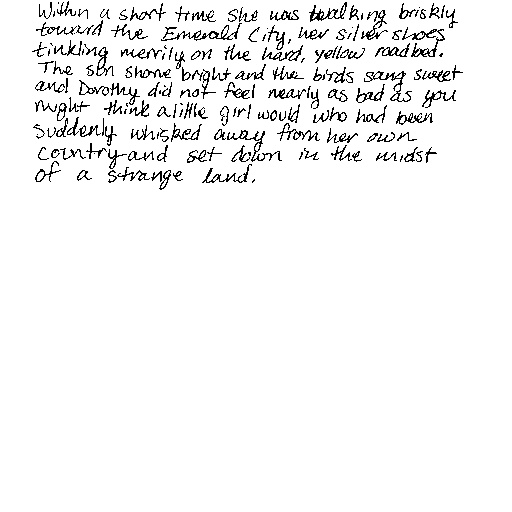 Within a short time she was walking briskly
toward the Emerald City, her silver shoes
tinkling merrily on the hard, yellow roadbed.
The sun shone bright and the birds sang sweet
and Dorothy did not feel nearly as bad as you
might think a little girl would who had been
suddenly whisked away from her own
country and set down in the midst
of a strange land.